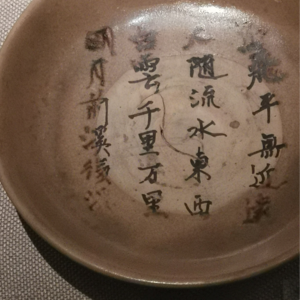 飛平無近遠
人隨流水東西
白雲千里万里
明月前溪後